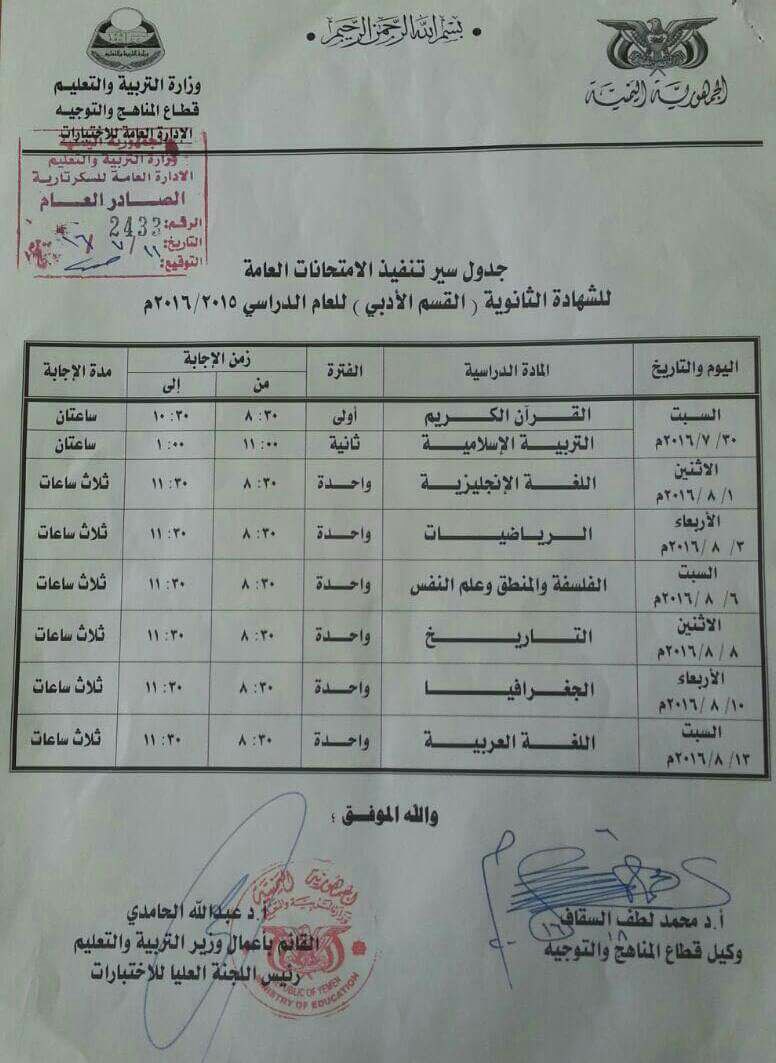 بسم الله الرحمن الرحيم
الجمهورية اليمنية
وزارة التربية والتعليم
قطاع المناهج والتوجيه
الادارة العامة للاختبارات
الجمهورية اليمنية
وزارة التربية والتعليم
الادارة العامة للسكرتارية
الصادر العام
الرقم: 2433
التاريخ:
التوقيع:
جدول سير تنفيذ الامتحانات العامة
للشهادة الثانوية ( القسم الأدبي ) للعام الدراسي ٢٠١٦/٢٠١٥م
اليوم والتاريخ المادة الدراسية الفترة زمن الإجابة مدة الإجابة
من إلى
السبت القرآن الكريم أولى ٨:٣٠ ١٠:٣٠ ساعتان
٣٠/ ٧ /٢٠١٦م التربية الإسلامية ثانية ١١:٠٠ ١:٠٠ ساعتان
الاثنين اللغة الإنجليزية واحدة ٨:٣٠ ١١:٣٠ ثلاث ساعات
١/ ٨ /٢٠١٦م
الأربعاء الرياضيات واحدة ٨:٣٠ ١١:٣٠ ثلاث ساعات
٣/ ٨ /٢٠١٦م
السبت الفلسفة والمنطق وعلم النفس واحدة ٨:٣٠ ١١:٣٠ ثلاث ساعات
٦/ ٨ /٢٠١٦م
الاثنين التاريخ واحدة ٨:٣٠ ١١:٣٠ ثلاث ساعات
٨/ ٨ /٢٠١٦م
الأربعاء الجغرافيا واحدة ٨:٣٠ ١١:٣٠ ثلاث ساعات
١٠/ ٨ /٢٠١٦م
السبت اللغة العربية واحدة ٨:٣٠ ١١:٣٠ ثلاث ساعات
١٣/ ٨ /٢٠١٦م
والله الموفق ؛
أ.د محمد لطف السقاف
وكيل قطاع المناهج والتوجيه
أ.د عبدالله الحامدي
القائم بأعمال وزير التربية والتعليم
رئيس اللجنة العليا للاختبارات
REPUBLIC OF YEMEN
MINISTRY OF EDUCATION